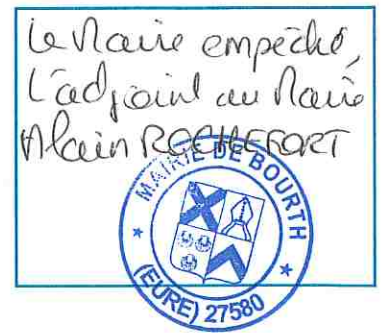 Le Maire empêché,
L'adjoint au Maire
Alain ROCHEFORT
MAIRIE DE BOURTH
(EURE) 27580